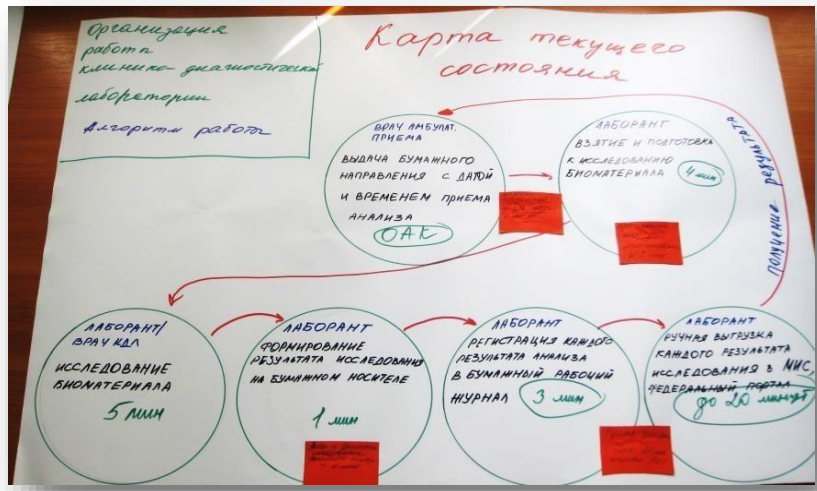 Организация
работы
клинико-диагностической
лаборатории
Алгоритм работы
Карта текущего
состояния
ВРАЧ АМБУЛАТ.
ПРИЕМА
ВЫДАЧА БУМАЖНОГО
НАПРАВЛЕНИЯ С ДАТОЙ
И ВРЕМЕНЕМ ПРИЕМА
АНАЛИЗА
ОАК
ЛАБОРАНТ
ВЗЯТИЕ И ПОДГОТОВКА
К ИССЛЕДОВАНИЮ
БИОМАТЕРИАЛА
4 мин
получение результата
ЛАБОРАНТ/
ВРАЧ КДЛ
ИССЛЕДОВАНИЕ
БИОМАТЕРИАЛА
5 мин
ЛАБОРАНТ
ФОРМИРОВАНИЕ
РЕЗУЛЬТАТА ИССЛЕДОВАНИЯ
НА БУМАЖНОМ НОСИТЕЛЕ
1 мин
ЛАБОРАНТ
РЕГИСТРАЦИЯ КАЖДОГО
РЕЗУЛЬТАТА АНАЛИЗА
В БУМАЖНЫЙ РАБОЧИЙ
ЖУРНАЛ 3 мин
ЛАБОРАНТ
РУЧНАЯ ВЫГРУЗКА
КАЖДОГО РЕЗУЛЬТАТА
ИССЛЕДОВАНИЯ В МИС,
ФЕДЕРАЛЬНЫЙ ПОРТАЛ
до 20 минут